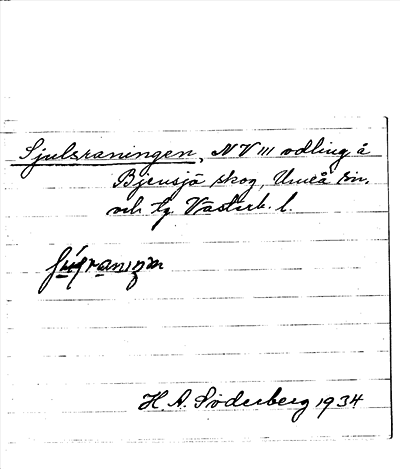 Sjulsraningen, NV III odling å
Bjensjö skog, Umeå sn.
och tg Västerb. l.
H. A. Söderberg 1934